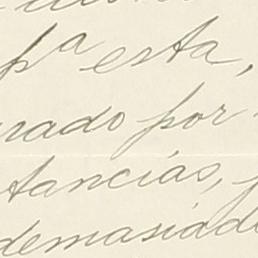 pª esta,
rado por
tancias,
demasiado